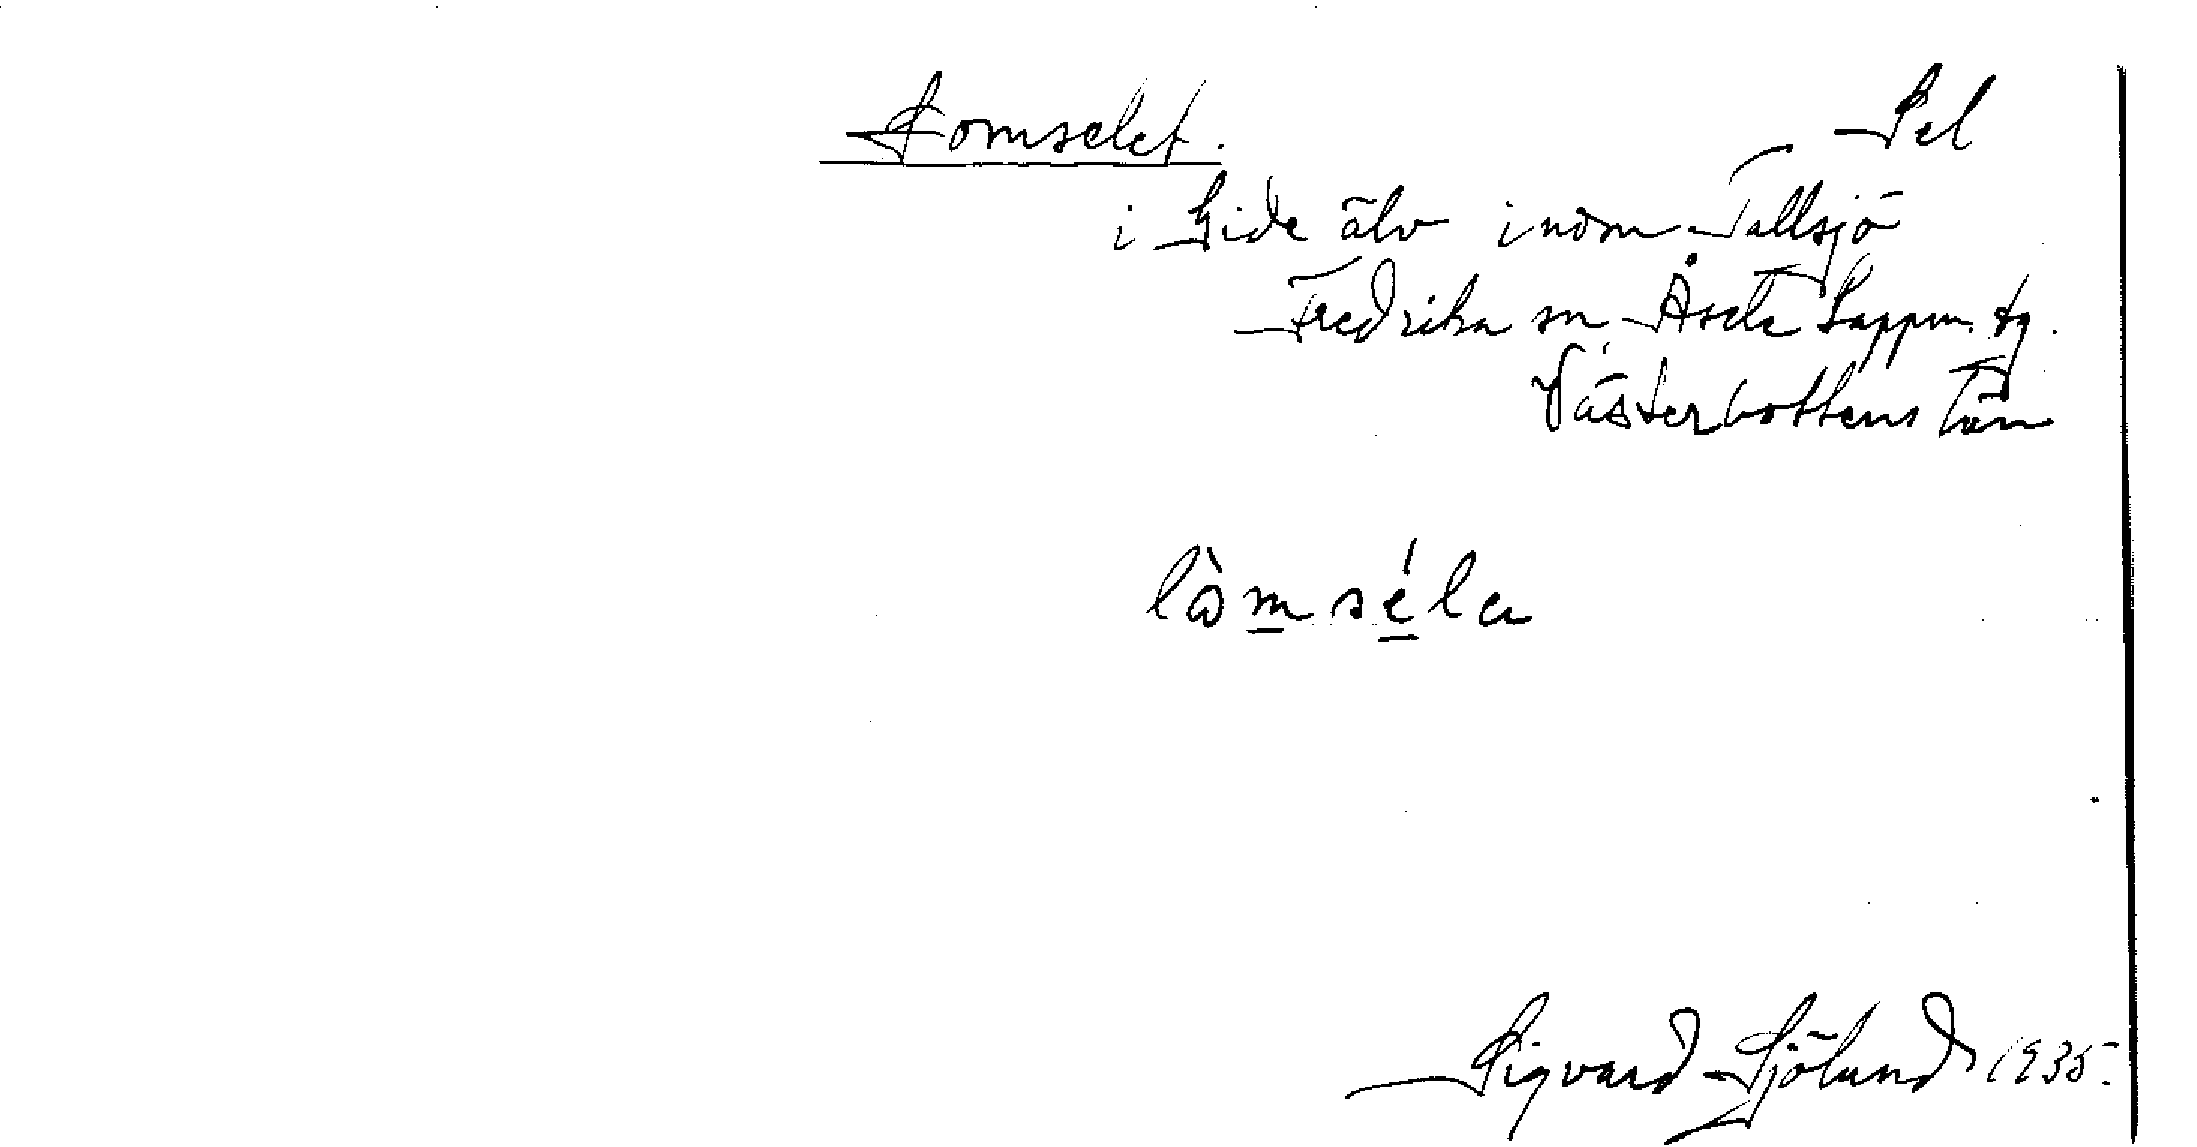 Lomselet. Sel
i Gide älv inom Tallsjö
Fredrika sn Åsele Lappm. tg.
Västerbottens län
lòmséla
Sigvard Sjölund 1935.